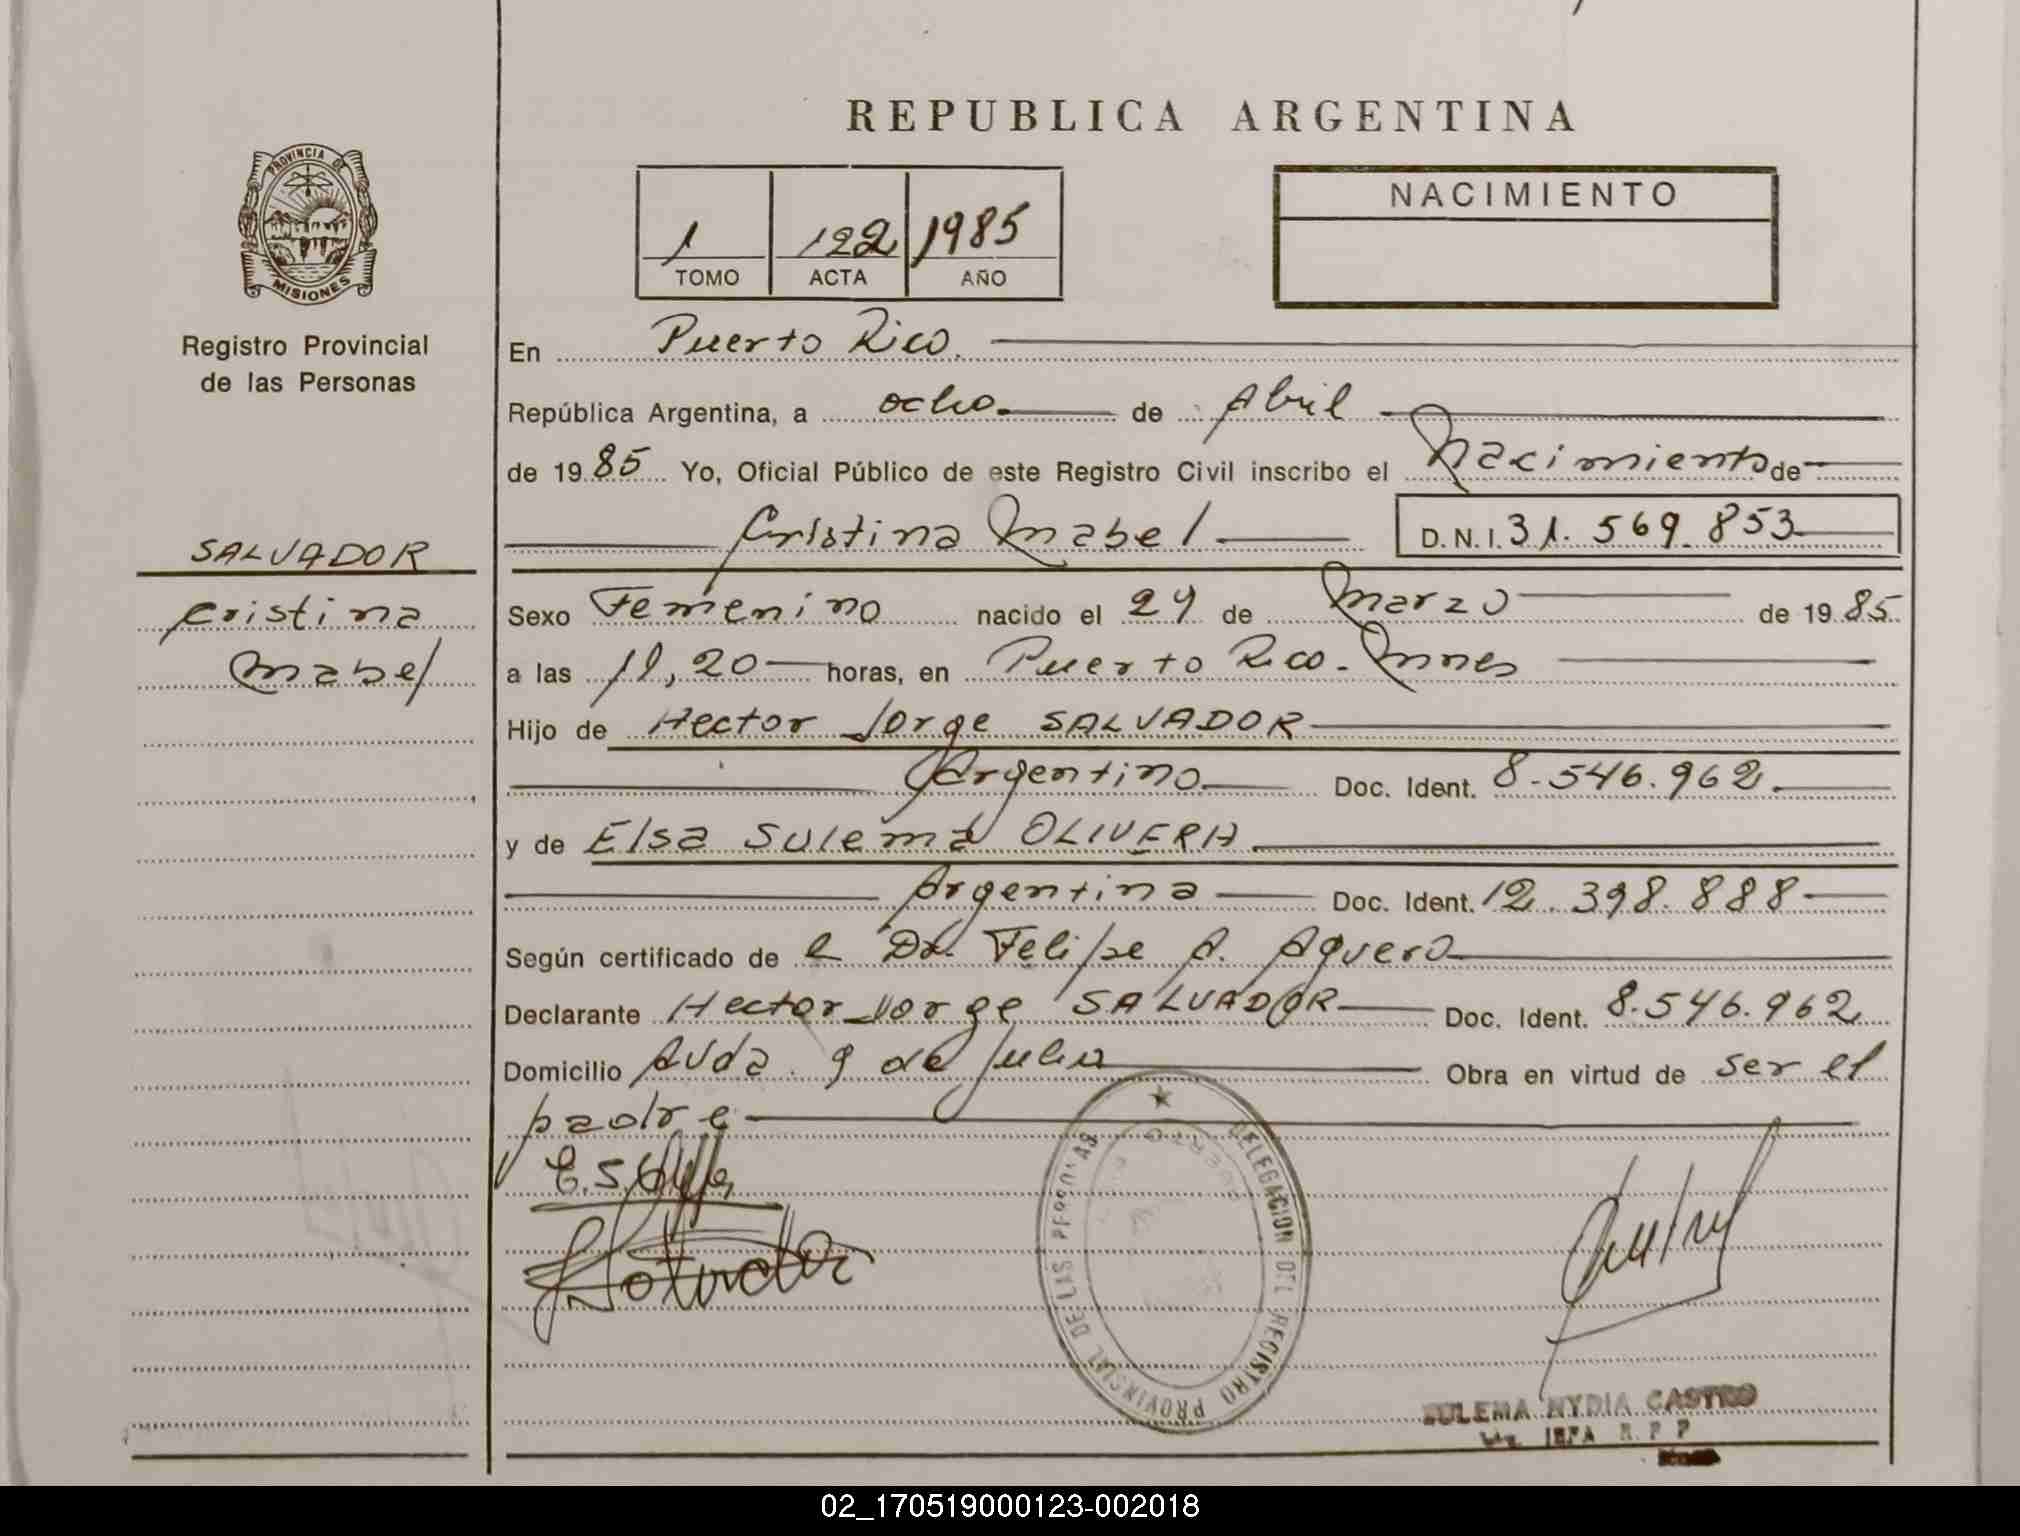 REPUBLICA ARGENTINA
PROVINCIA DE
MISIONES
Registro Provincial
de las Personas
1 122 1985
TOMO ACTA AÑO
NACIMIENTO
En Puerto Rico.
República Argentina, a ocho de Abril
de 1985 Yo, Oficial Público de este Registro Civil inscribo el Nacimiento de
Cristina Mabel D.N.I. 31.569.853
SALVADOR
Cristina
Mabel
Sexo Femenino nacido el 29 de Marzo de 1985
a las 11,20 horas, en Puerto Rico. Mnes
Hijo de Hector Jorge SALVADOR
Argentino Doc. Ident. 8.546.962.
y de Elsa Sulema OLIVERA
Argentina Doc. Ident. 12.398.888
Según certificado de el Dr. Felipe A. Aguero
Declarante Hector Jorge SALVADOR Doc. Ident. 8.546.962
Domicilio Avda. 9 de Julio Obra en virtud de ser el
padre
DELEGACION DEL REGISTRO PROVINSIAL DE LAS PERSONAS
PUERTO
SULEMA NYDIA CASTRO
JEFA R.P.P
02_170519000123-002018